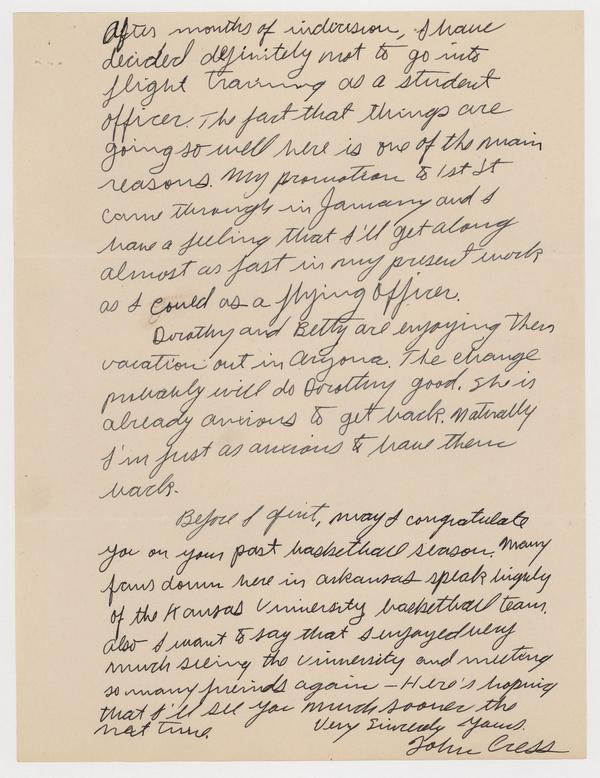 After months of indecision, I have
decided definitely not to go into
flight training as a student
officer. The fact that things are
going so well here is one of the main
reasons. My promotion to 1st Lt
came through in January and I
have a feeling that I'll get along
almost as fast in my present work
as I could as a flying officer.
Dorothy and Betty are enjoying their
vacation out in Arizona. The change
probably will do Dorothy good. She is
already anxious to get back. Naturally
I'm just as anxious to have them
back.
Before I quit, may I congratulate
you on your past basketball season. Many
fans down here in Arkansas speak highly
of the Kansas University basketball team.
Also I want to say that I enjoyed very
much seeing the University and meeting
so many friends again – Here's hoping
that I'll see you much sooner the
next time.
Very Sincerely Yours.
John Cress